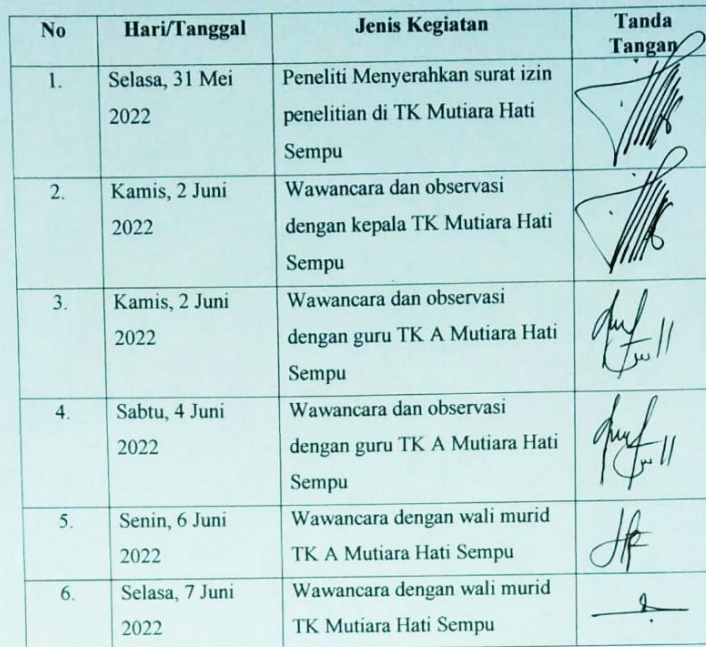 No Hari/Tanggal Jenis Kegiatan Tanda
Tangan
1. Selasa, 31 Mei Peneliti Menyerahkan surat izin
2022 penelitian di TK Mutiara Hati
Sempu
2. Kamis, 2 Juni Wawancara dan observasi
2022 dengan kepala TK Mutiara Hati
Sempu
3. Kamis, 2 Juni Wawancara dan observasi
2022 dengan guru TK A Mutiara Hati
Sempu
4. Sabtu, 4 Juni Wawancara dan observasi
2022 dengan guru TK A Mutiara Hati
Sempu
5. Senin, 6 Juni Wawancara dengan wali murid
2022 TK A Mutiara Hati Sempu
6. Selasa, 7 Juni Wawancara dengan wali murid
2022 TK Mutiara Hati Sempu